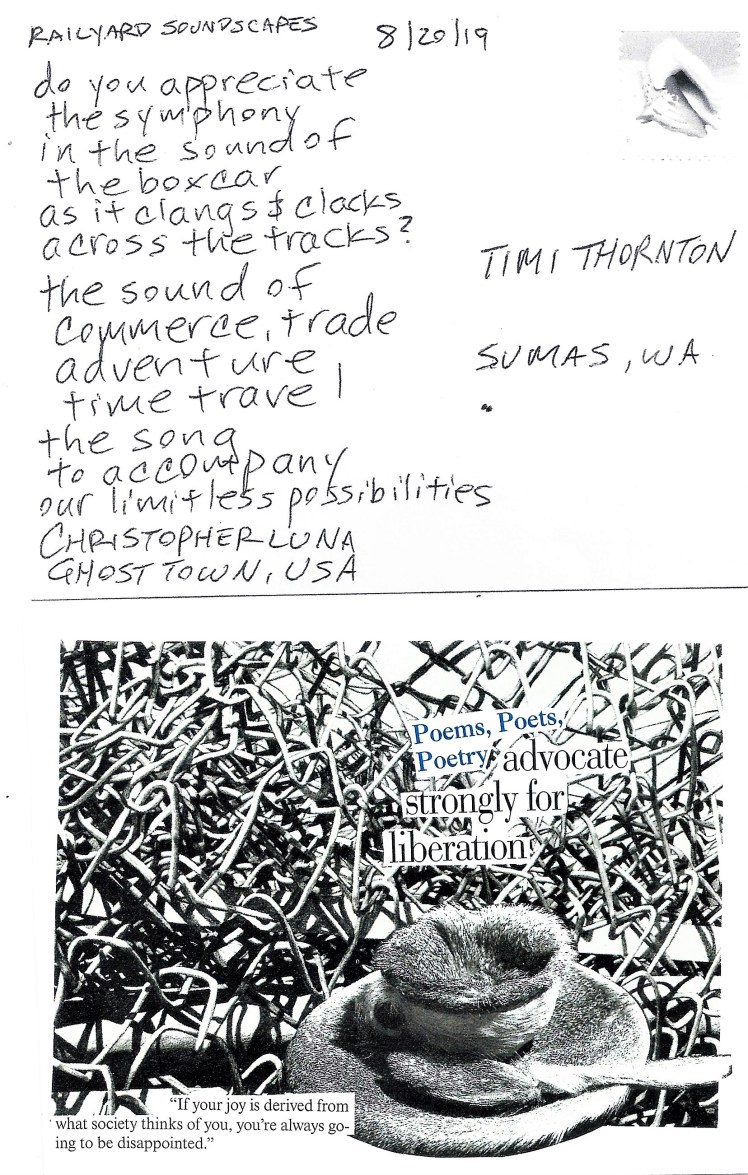 RAILYARD SOUNDSCAPES 8/20/19
do you appreciate
the symphony
in the sound of
the boxcar
as it clangs & clacks
across the tracks?
the sound of
commerce, trade
adventure
time travel
the song
to accompany
our limitless possibilities
CHRISTOPHER LUNA
GHOST TOWN, USA
TIMI THORNTON
SUMAS, WA
Poems, Poets,
Poetry, advocate
strongly for
liberation.
"If your joy is derived from
what society thinks of you, you're always go-
ing to be disappointed."